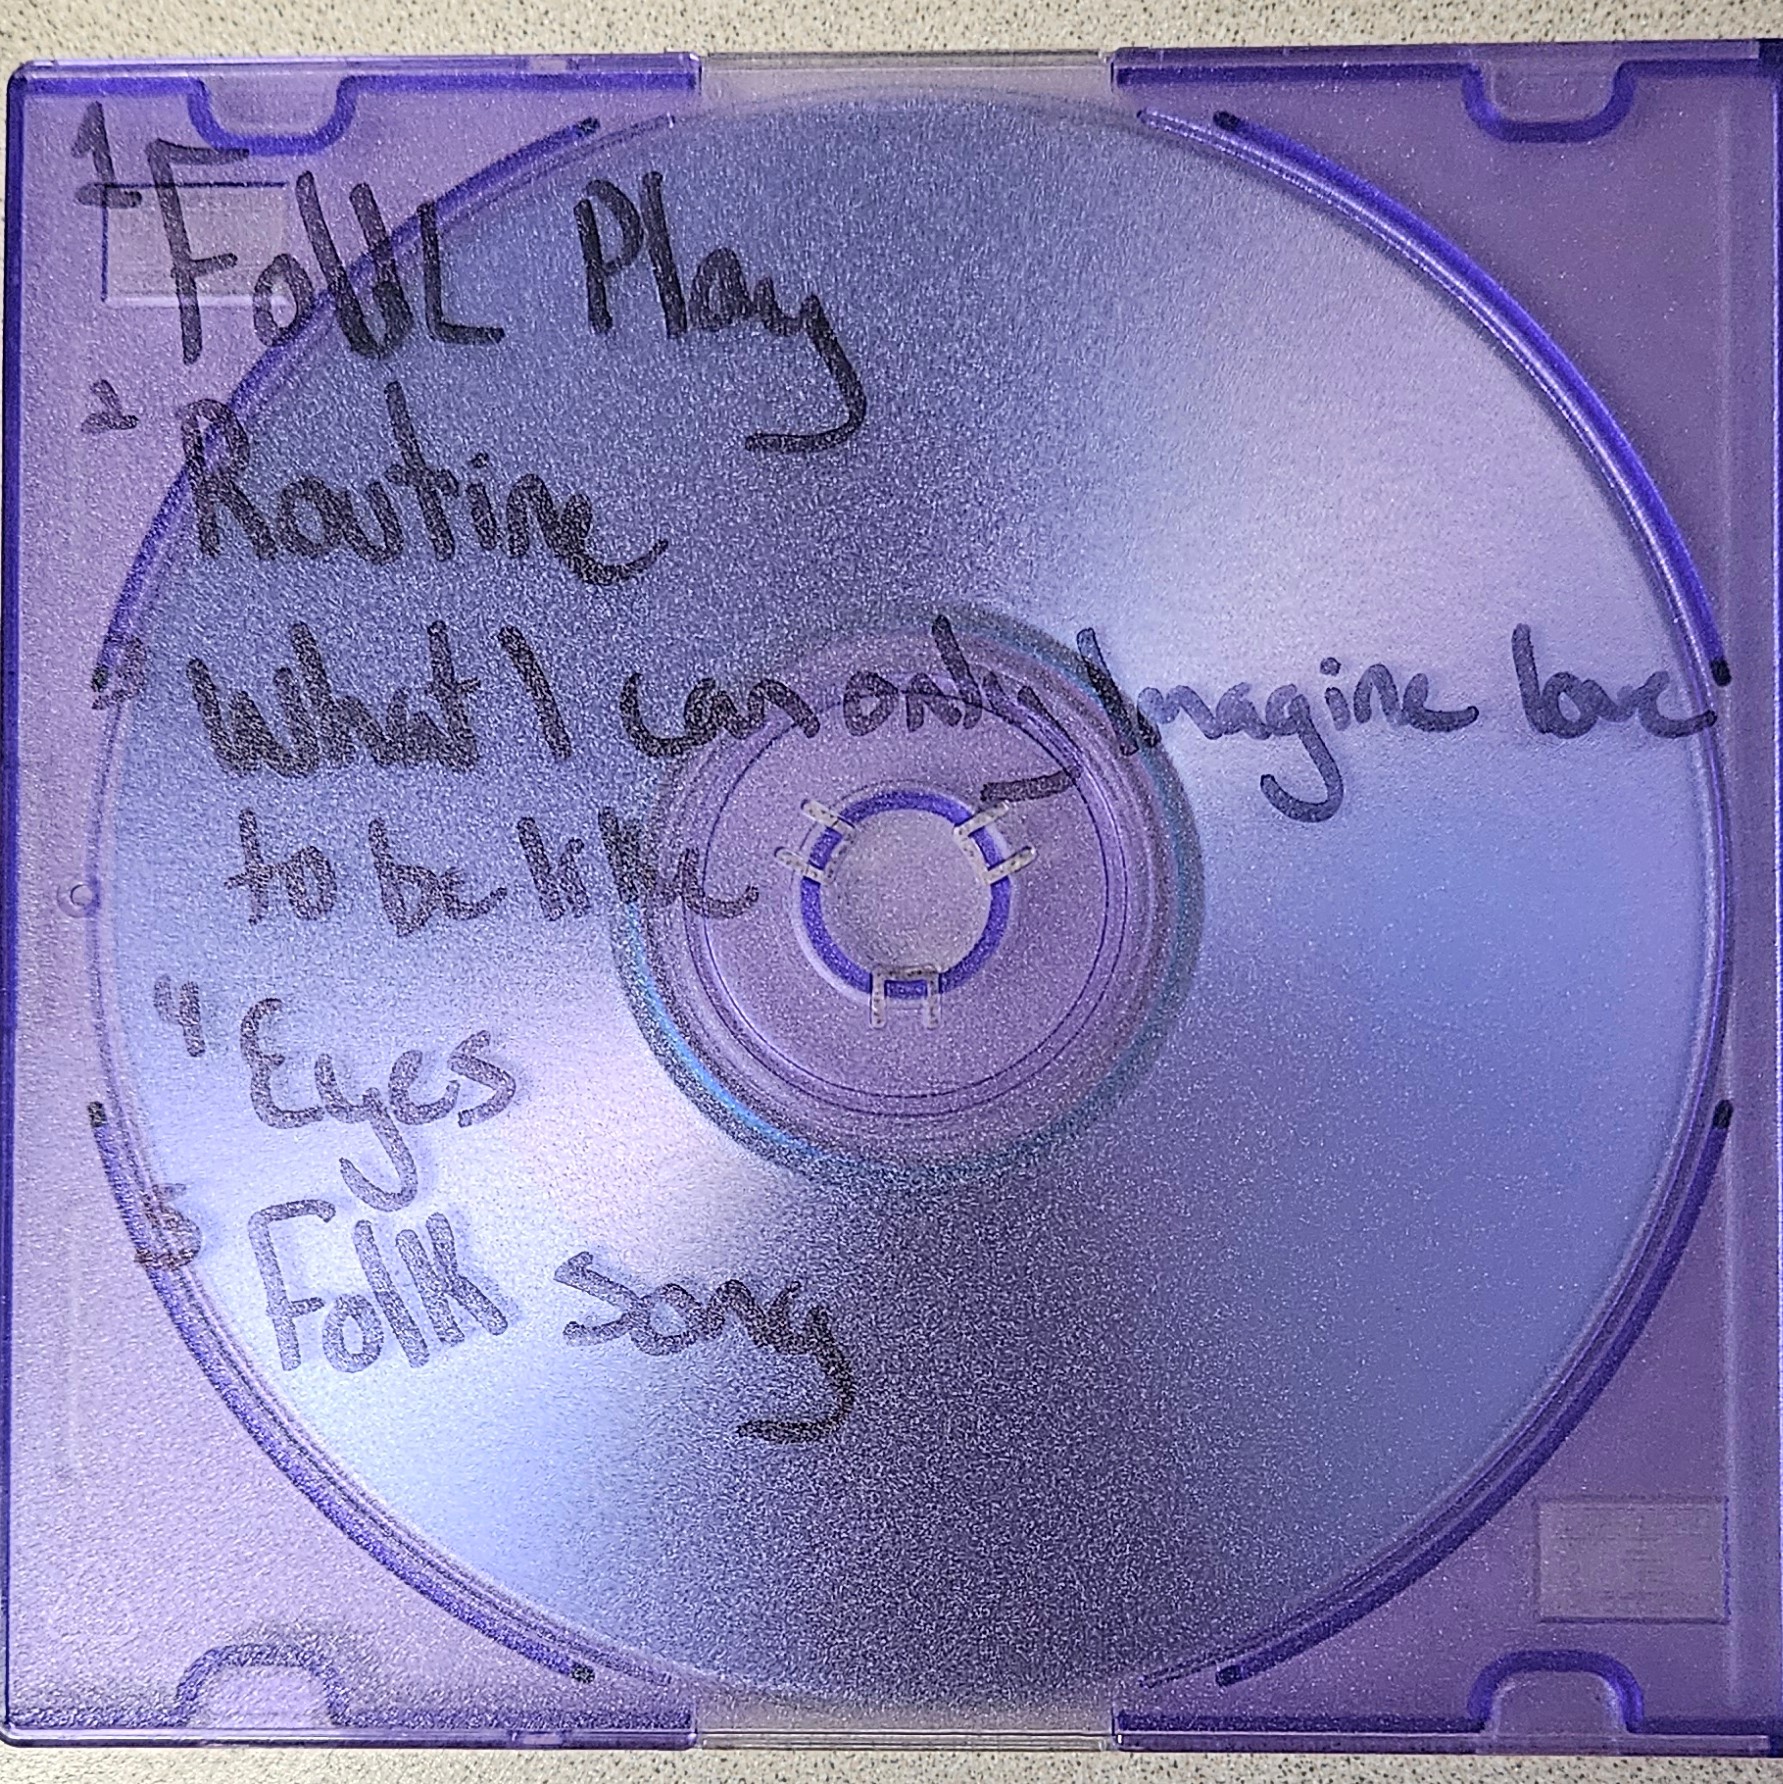 1 Folk Play
2 Routine
3 What I can only Imagine love
to be like
4 Eyes
5 Folk Song